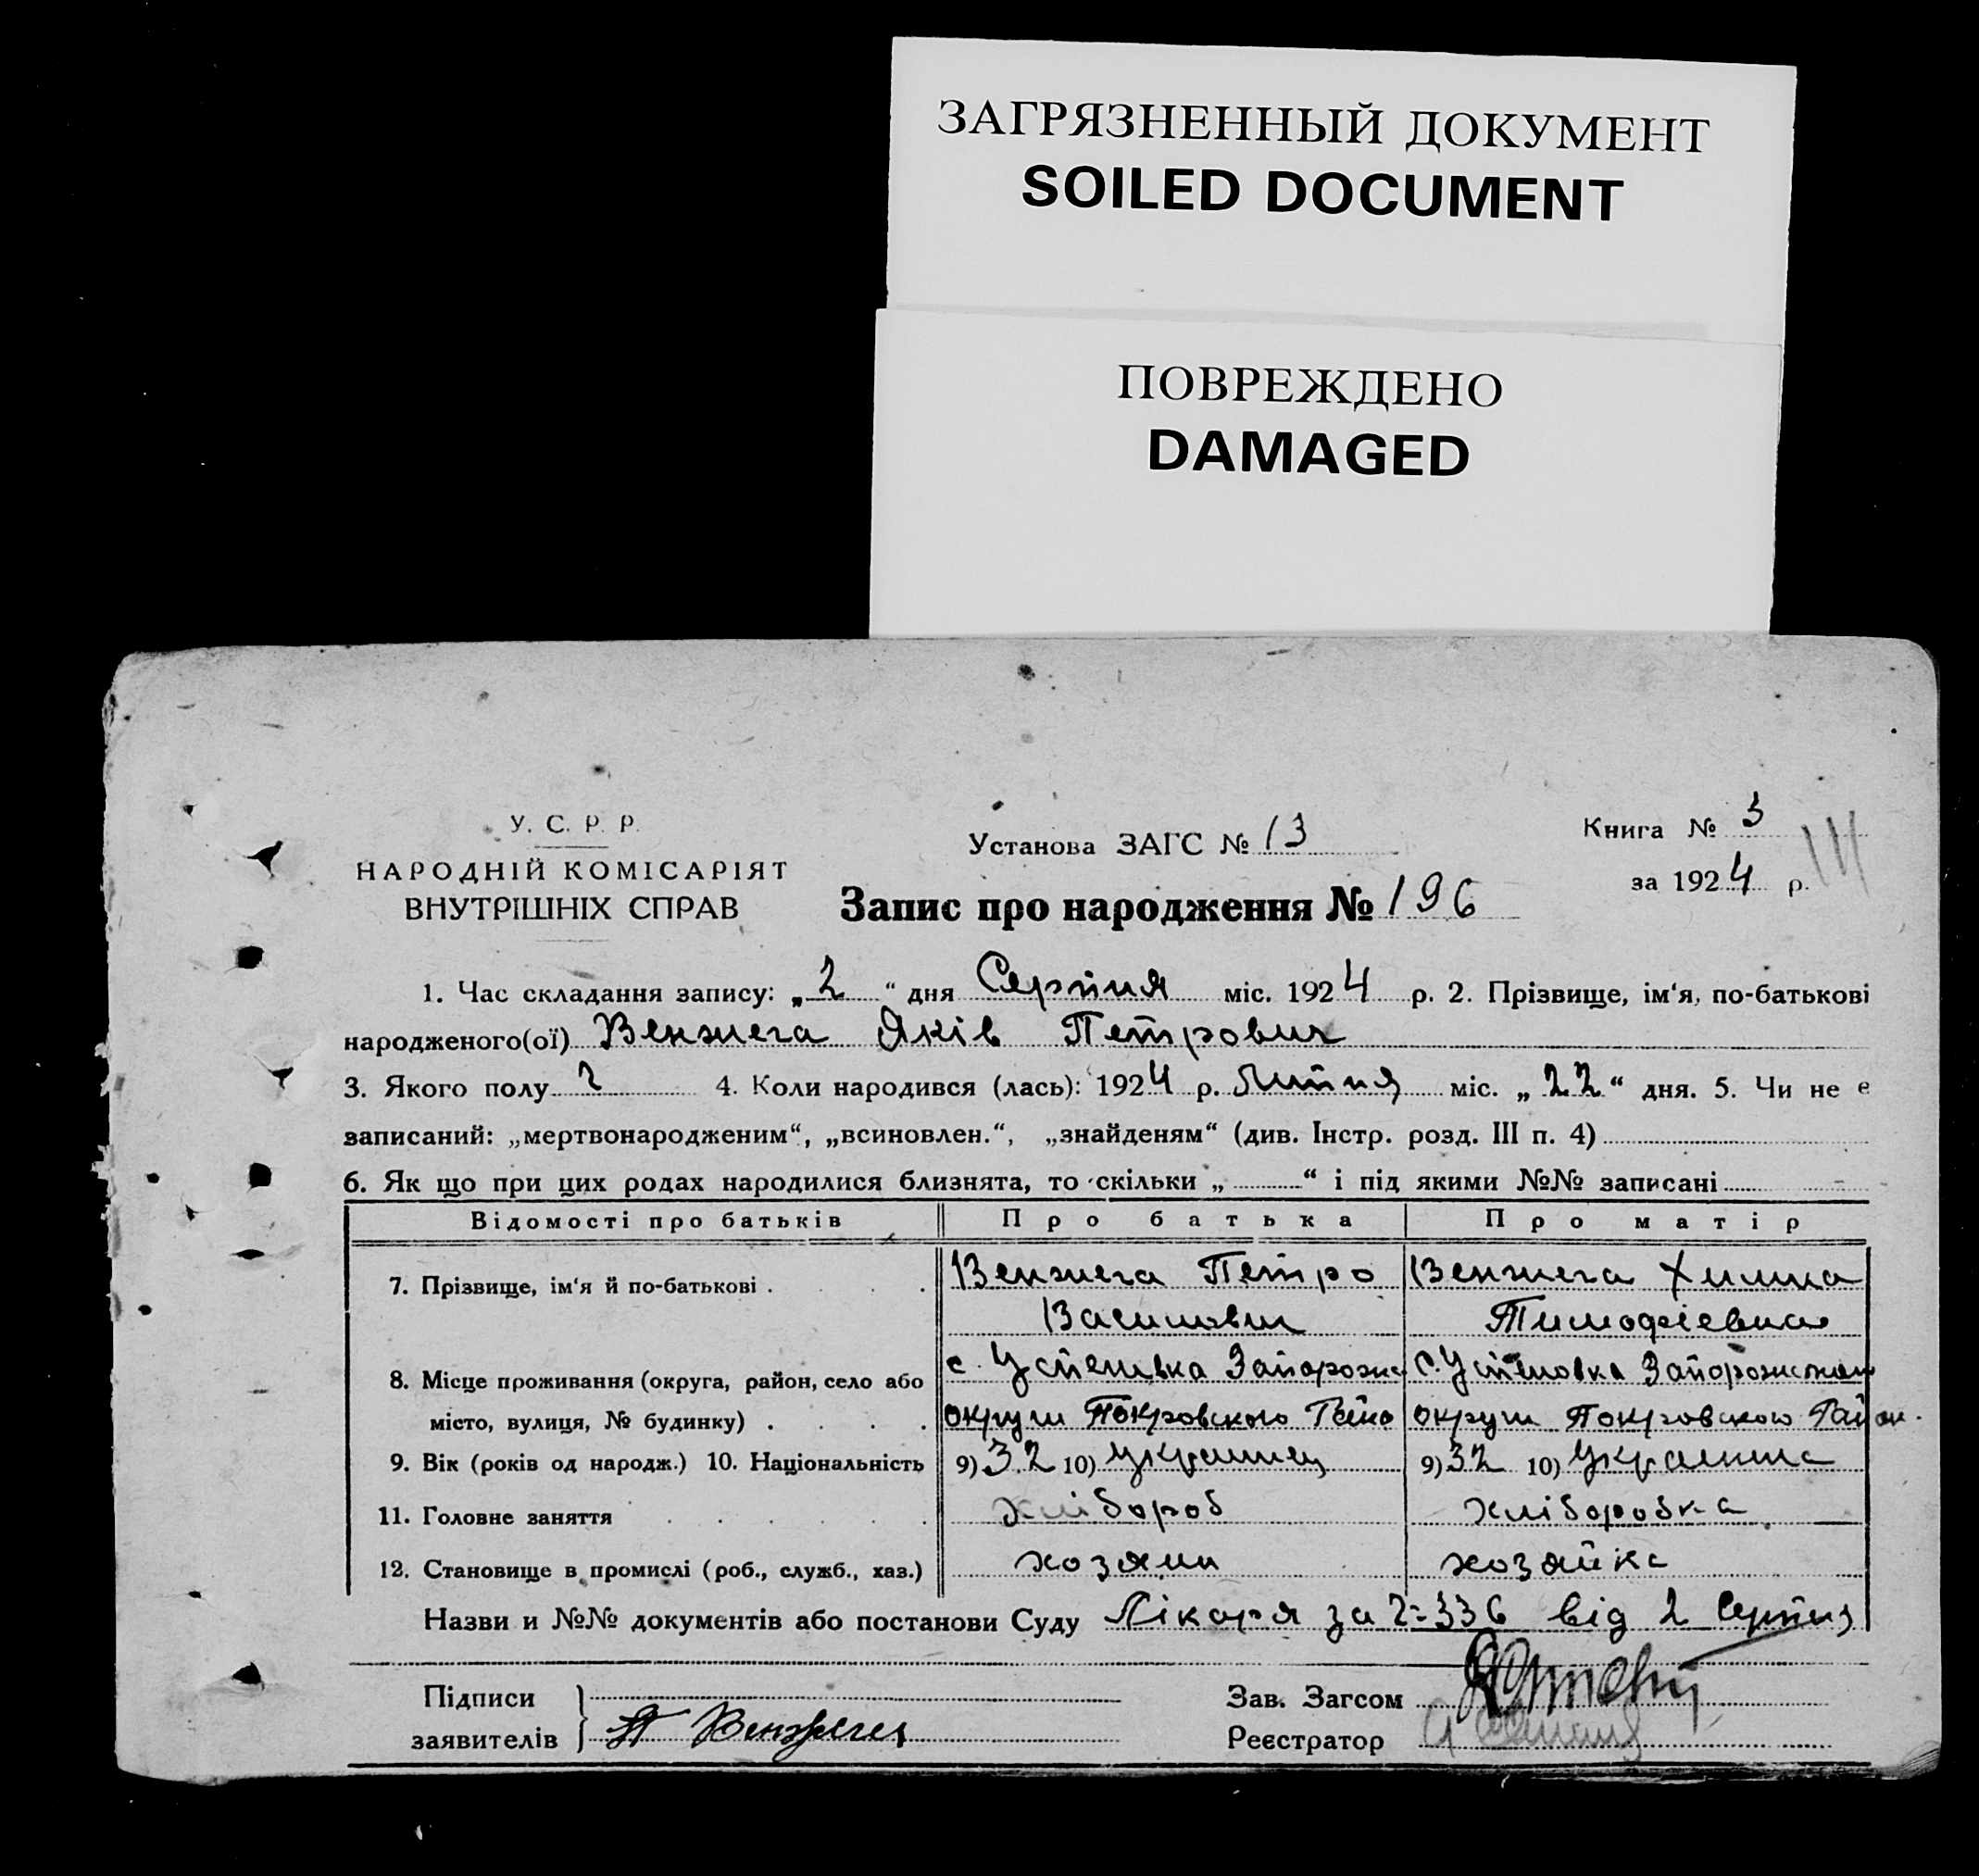 ЗАГРЯЗНЕННЫЙ ДОКУМЕНТ
SOILED DOCUMENT
ПОВРЕЖДЕНО
DAMAGED
У. С. Р. Р.
НАРОДНІЙ КОМІСАРІЯТ
ВНУТРІШНІХ СПРАВ
Установа ЗАГС № 13
Запис про народження № 196
Книга № 3
за 1924 р.
1. Час складання запису: „2“ дня Серпня міс. 1924 р. 2. Прізвище, ім‘я, по-батькові
народженого(ої) Венжега Яків Петрович
3. Якого полу ч 4. Коли народився (лась): 1924 р. Липня міс. „22“ дня. 5. Чи не є
записаний: „мертвонародженим“, „всиновлен.“, „знайденям“ (див. Інстр. розд. III п. 4)
6. Як що при цих родах народилися близнята, то скільки „ “ і під якими №№ записані
Відомості про батьків Про батька Про матір
7. Прізвище, ім‘я й по-батькові . Венжега Петро Венжега Химка
Василович Тимофієвна
8. Місце проживання (округа, район, село або с. Успенівка Запорожс с. Успеновка Запорожської
місто, вулиця, № будинку) . округи Покровського Райо округи Покровського Район.
9. Вік (років од народж.) 10. Національність 9) 32 10) Украинец 9) 32 10) Украинка
11. Головне заняття хлібороб хліборобка
12. Становище в промислі (роб., служб., хаз.) хозяин хозяйка
Назви и №№ документів або постанови Суду Лікаря за ч=336 від 2 Серпня
Підписи Зав. Загсом
заявителів П Венжега Реєстратор